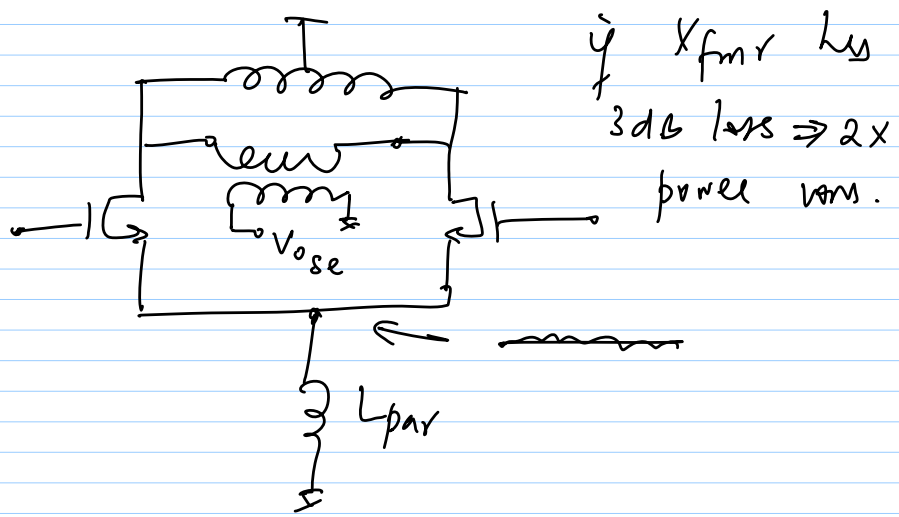 if Xfmr has
3dB loss ⇒ 2x
power cons.
Vose
Lpar